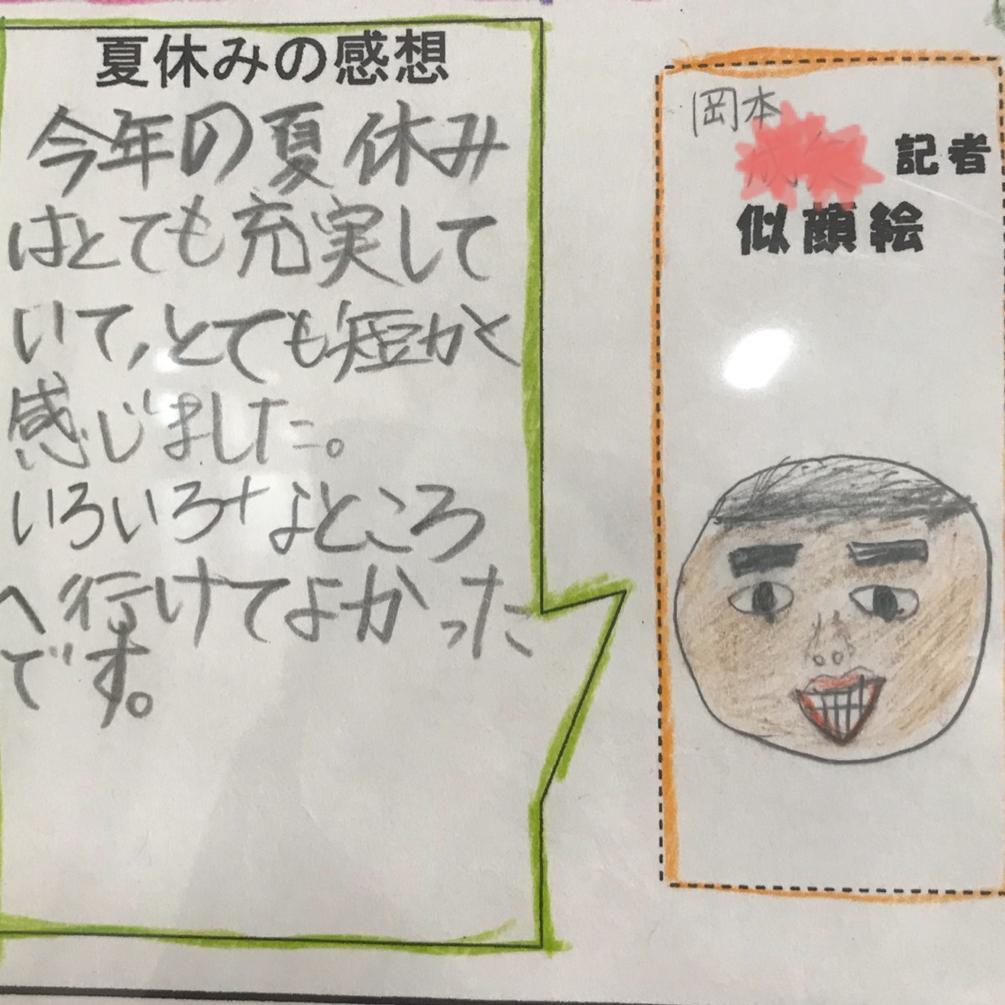 夏休みの感想
今年の夏休み
はとても充実して
いて,とても短かく
感じました。
いろいろなところ
へ行けてよかった
です。
岡本
記者
似顔絵